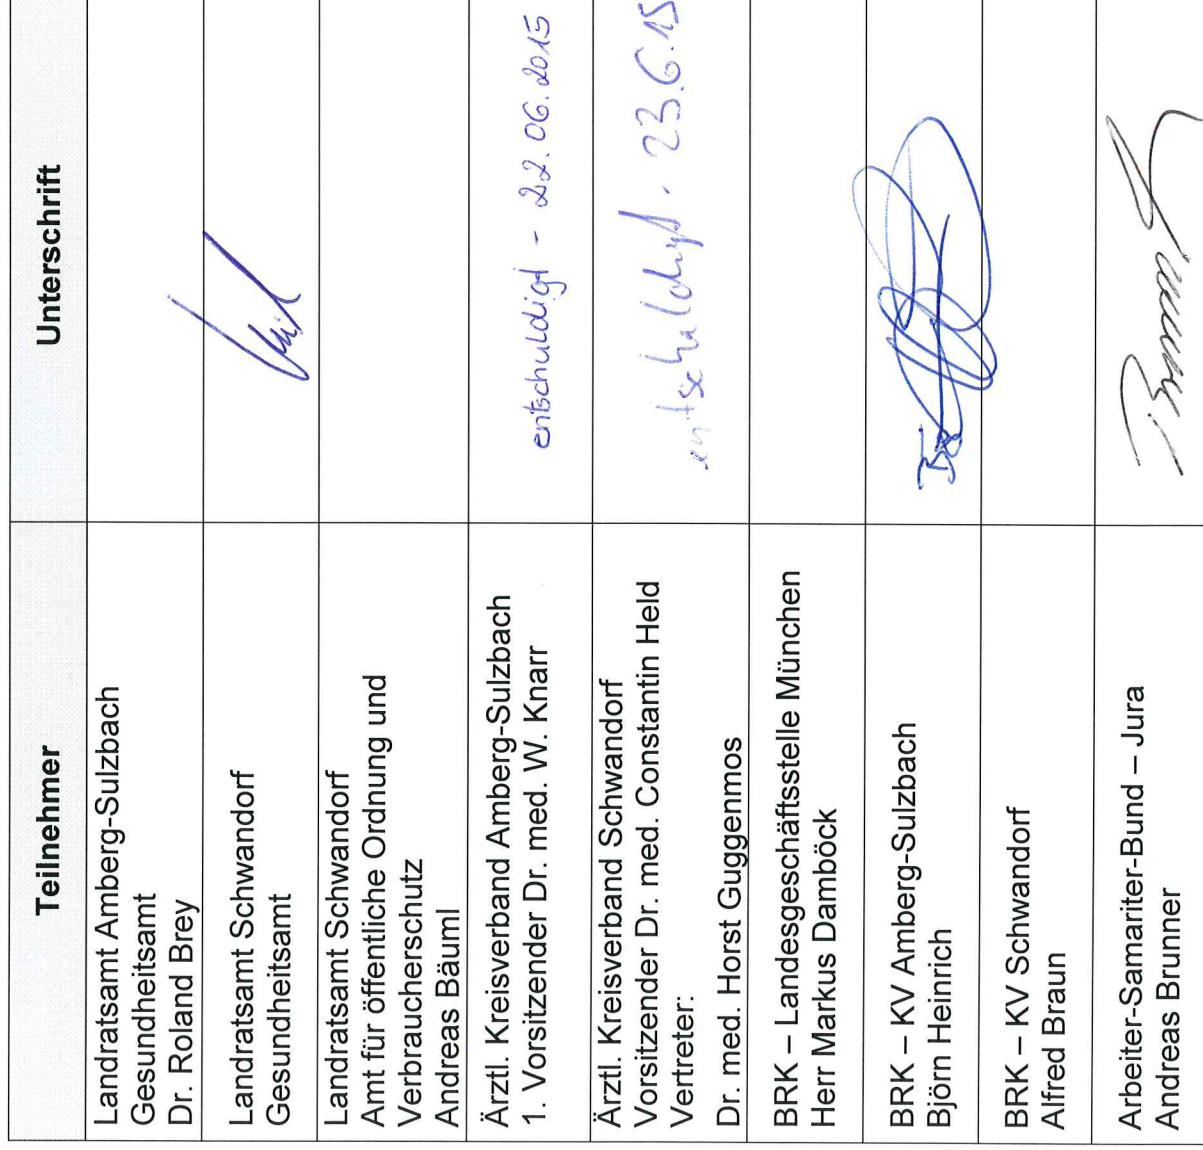 Teilnehmer
Unterschrift
Landratsamt Amberg-Sulzbach
Gesundheitsamt
Dr. Roland Brey
Landratsamt Schwandorf
Gesundheitsamt
Landratsamt Schwandorf
Amt für öffentliche Ordnung und
Verbraucherschutz
Andreas Bäuml
Ärztl. Kreisverband Amberg-Sulzbach
1. Vorsitzender Dr. med. W. Knarr
entschuldigt - 22.06.2015
Ärztl. Kreisverband Schwandorf
Vorsitzender Dr. med. Constantin Held
Vertreter:
Dr. med. Horst Guggenmos
entschuldigt. 23.6.15
BRK – Landesgeschäftsstelle München
Herr Markus Damböck
BRK – KV Amberg-Sulzbach
Björn Heinrich
BRK – KV Schwandorf
Alfred Braun
Arbeiter-Samariter-Bund – Jura
Andreas Brunner